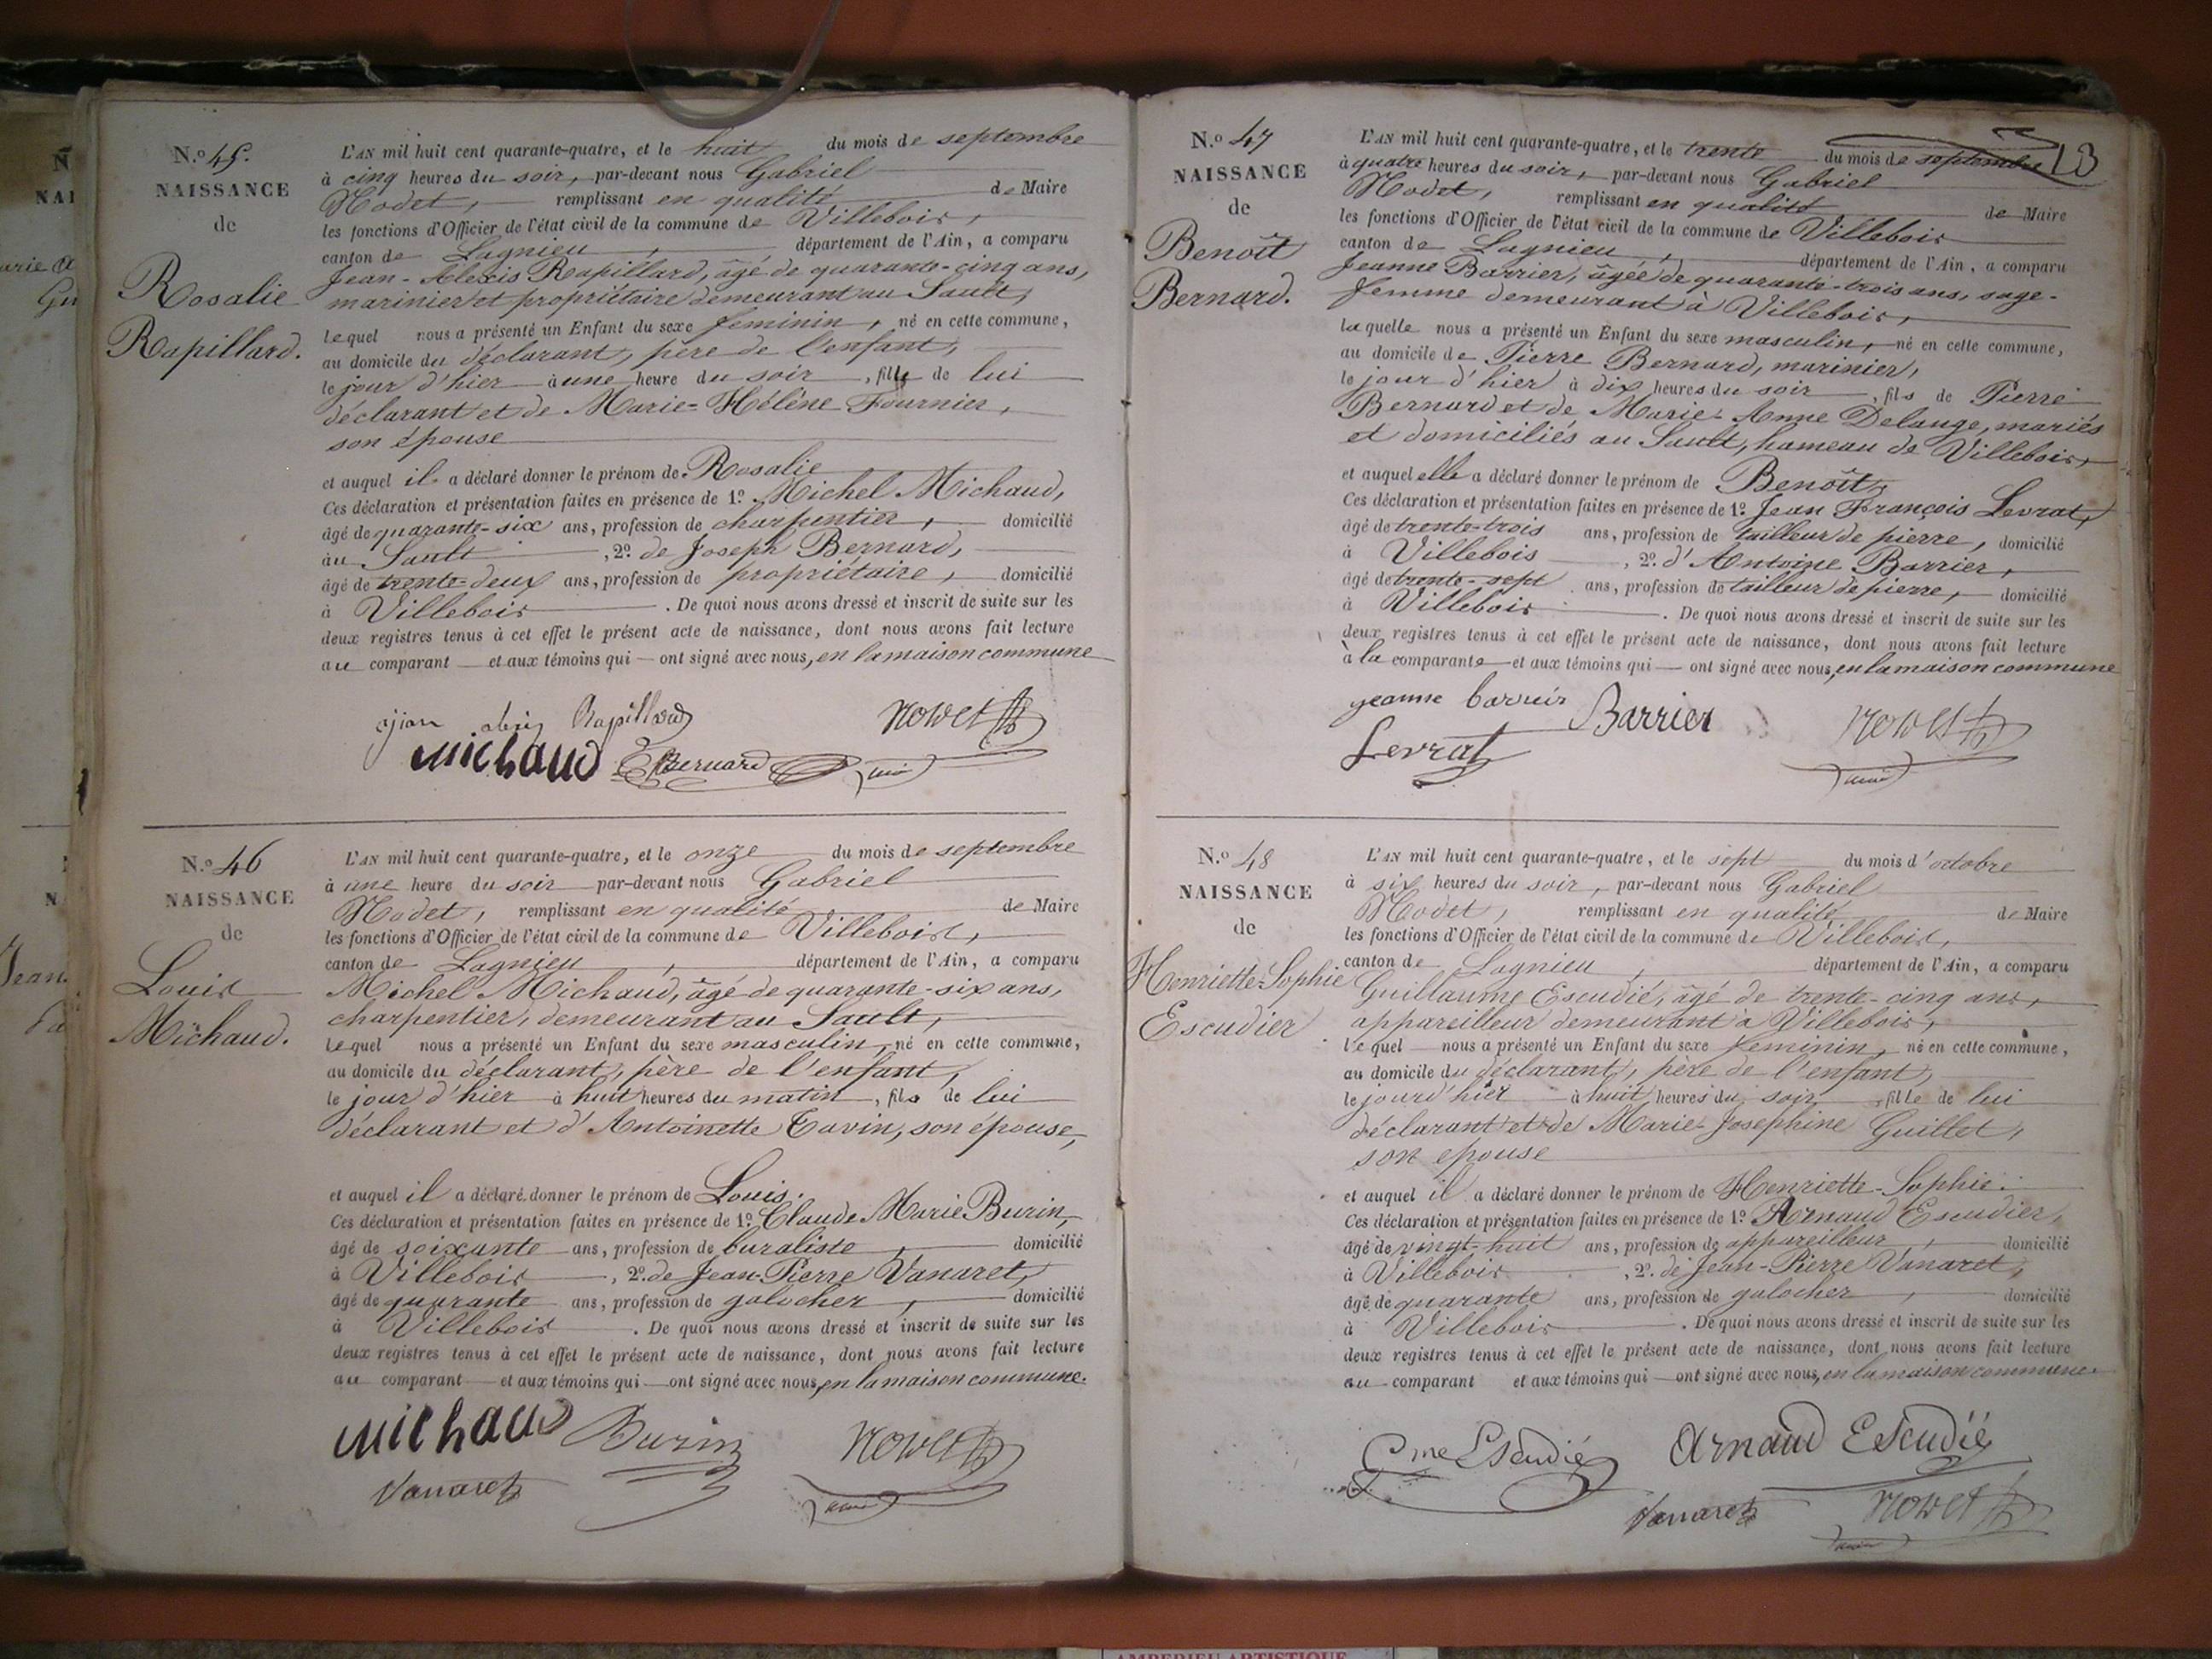 N.º 45.
NAISSANCE
de
Rosalie
Rapillard.
L'AN mil huit cent quarante-quatre, et le huit du mois de septembre
à cinq heures du soir, par-devant nous Gabriel
Nodet, remplissant en qualité de Maire
les fonctions d'Officier de l'état civil de la commune de Villebois,
canton de Lagnieu, département de l'Ain, a comparu
Jean-Alexis Rapillard, âgé de quarante-cinq ans,
marinier et propriétaire demeurant au Sault,
lequel nous a présenté un Enfant du sexe feminin, né en cette commune,
au domicile du déclarant, père de l'enfant,
le jour d'hier à une heure du soir, fille de lui
déclarant et de Marie-Hélène Fournier,
son épouse
et auquel il a déclaré donner le prénom de Rosalie
Ces déclaration et présentation faites en présence de 1º Michel Michaud,
âgé de quarante-six ans, profession de charpentier, domicilié
au Sault, 2º de Joseph Bernard,
âgé de trente-deux ans, profession de propriétaire, domicilié
à Villebois. De quoi nous avons dressé et inscrit de suite sur les
deux registres tenus à cet effet le présent acte de naissance, dont nous avons fait lecture
au comparant et aux témoins qui ont signé avec nous, en la maison commune
Rapillard Nodet
Michaud Bernard
N.º 46
NAISSANCE
de
Louis
Michaud.
L'AN mil huit cent quarante-quatre, et le onze du mois de septembre
à une heure du soir par-devant nous Gabriel
Nodet, remplissant en qualité de Maire
les fonctions d'Officier de l'état civil de la commune de Villebois,
canton de Lagnieu, département de l'Ain, a comparu
Michel Michaud, âgé de quarante-six ans,
charpentier, demeurant au Sault,
lequel nous a présenté un Enfant du sexe masculin, né en cette commune,
au domicile du déclarant, père de l'enfant,
le jour d'hier à huit heures du matin, fils de lui
déclarant et d'Antoinette Tavin, son épouse,
et auquel il a déclaré donner le prénom de Louis.
Ces déclaration et présentation faites en présence de 1º Claude Marie Burin,
âgé de soixante ans, profession de buraliste, domicilié
à Villebois, 2º de Jean-Pierre Vanaret,
âgé de quarante ans, profession de galocher, domicilié
à Villebois. De quoi nous avons dressé et inscrit de suite sur les
deux registres tenus à cet effet le présent acte de naissance, dont nous avons fait lecture
au comparant et aux témoins qui ont signé avec nous, en la maison commune.
Michaud Burin Nodet
Vanaret
N.º 47
NAISSANCE
de
Benoît
Bernard.
L'AN mil huit cent quarante-quatre, et le trente du mois de septembre
à quatre heures du soir, par-devant nous Gabriel
Nodet, remplissant en qualité de Maire
les fonctions d'Officier de l'état civil de la commune de Villebois
canton de Lagnieu, département de l'Ain, a comparu
Jeanne Barrier, âgée de quarante-trois ans, sage-
femme demeurant à Villebois,
laquelle nous a présenté un Enfant du sexe masculin, né en cette commune,
au domicile de Pierre Bernard, marinier,
le jour d'hier à dix heures du soir, fils de Pierre
Bernard et de Marie-Anne Delange, mariés
et domiciliés au Sault, hameau de Villebois,
et auquel elle a déclaré donner le prénom de Benoît,
Ces déclaration et présentation faites en présence de 1º Jean François Levrat,
âgé de trente-trois ans, profession de tailleur de pierre, domicilié
à Villebois, 2º d'Antoine Barrier,
âgé de trente-sept ans, profession de tailleur de pierre, domicilié
à Villebois. De quoi nous avons dressé et inscrit de suite sur les
deux registres tenus à cet effet le présent acte de naissance, dont nous avons fait lecture
à la comparante et aux témoins qui ont signé avec nous, en la maison commune
jeanne Barrier Nodet
Levrat
N.º 48
NAISSANCE
de
Henriette-Sophie
Escudier
L'AN mil huit cent quarante-quatre, et le sept du mois d'octobre
à six heures du soir, par-devant nous Gabriel
Nodet, remplissant en qualité de Maire
les fonctions d'Officier de l'état civil de la commune de Villebois,
canton de Lagnieu, département de l'Ain, a comparu
Guillaume Escudié, âgé de trente-cinq ans,
appareilleur demeurant à Villebois,
lequel nous a présenté un Enfant du sexe feminin, né en cette commune,
au domicile du déclarant, père de l'enfant,
le jour d'hier à huit heures du soir, fille de lui
déclarant et de Marie-Josephine Guillet,
son epouse
et auquel il a déclaré donner le prénom de Henriette-Sophie.
Ces déclaration et présentation faites en présence de 1º Arnaud Escudier,
âgé de vingt-huit ans, profession de appareilleur, domicilié
à Villebois, 2º de Jean-Pierre Vanaret,
âgé de quarante ans, profession de galocher, domicilié
à Villebois. De quoi nous avons dressé et inscrit de suite sur les
deux registres tenus à cet effet le présent acte de naissance, dont nous avons fait lecture
au comparant et aux témoins qui ont signé avec nous, en la maison commune
Gme Escudié Arnaud Escudié
Vanaret Nodet